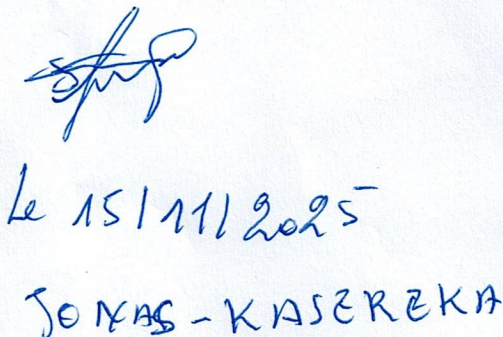 Le 15/11/2025
JONAS - KASEREKA